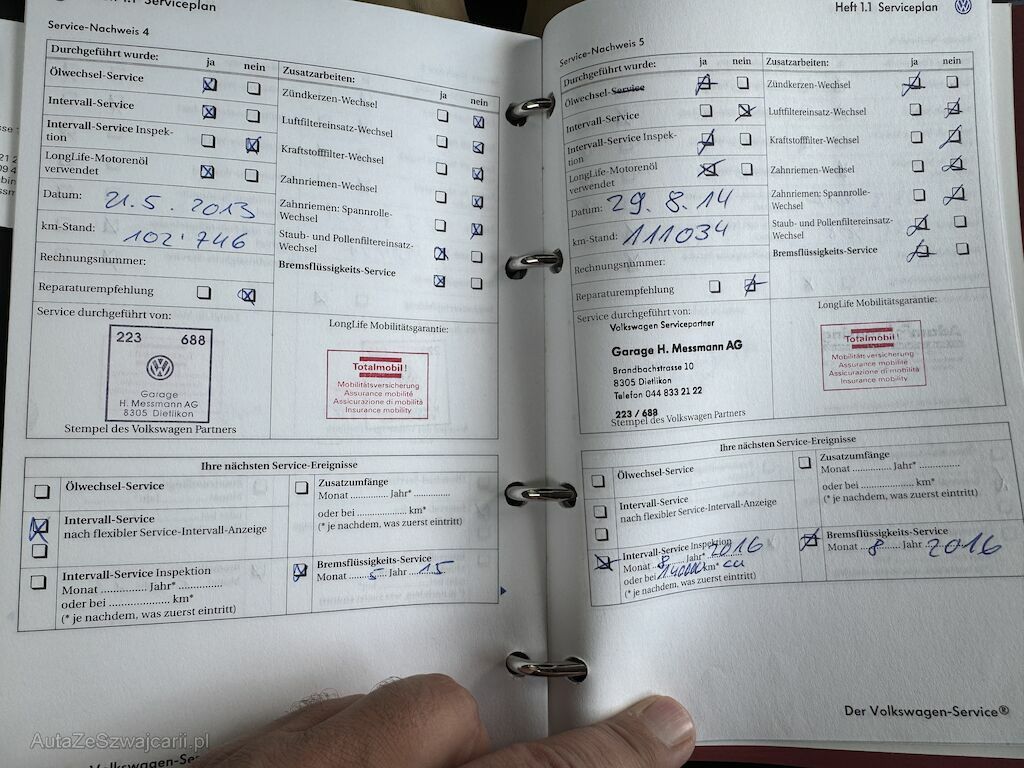 1.1 Serviceplan
Service-Nachweis 4
Durchgeführt wurde: ja nein
Ölwechsel-Service
Intervall-Service
Intervall-Service Inspek-
tion
LongLife-Motorenöl
verwendet
Datum: 21.5.2013
km-Stand: 102'746
Rechnungsnummer:
Reparaturempfehlung
Zusatzarbeiten: ja nein
Zündkerzen-Wechsel
Luftfiltereinsatz-Wechsel
Kraftstofffilter-Wechsel
Zahnriemen-Wechsel
Zahnriemen: Spannrolle-
Wechsel
Staub- und Pollenfiltereinsatz-
Wechsel
Bremsflüssigkeits-Service
Service durchgeführt von:
223 688
Garage
H. Messmann AG
8305 Dietlikon
Stempel des Volkswagen Partners
LongLife Mobilitätsgarantie:
Totalmobil!
Mobilitätsversicherung
Assurance mobilité
Assicurazione di mobilità
Insurance mobility
Ihre nächsten Service-Ereignisse
Ölwechsel-Service
Intervall-Service
nach flexibler Service-Intervall-Anzeige
Intervall-Service Inspektion
Monat .............. Jahr* ..............
oder bei .................... km*
(* je nachdem, was zuerst eintritt)
Zusatzumfänge
Monat ............. Jahr* .............
oder bei ............. km*
(* je nachdem, was zuerst eintritt)
Bremsflüssigkeits-Service
Monat 5 Jahr 15
Heft 1.1 Serviceplan
Service-Nachweis 5
Durchgeführt wurde: ja nein
Ölwechsel-Service
Intervall-Service
Intervall-Service Inspek-
tion
LongLife-Motorenöl
verwendet
Datum: 29.8.14
km-Stand: 111034
Rechnungsnummer:
Reparaturempfehlung
Zusatzarbeiten: ja nein
Zündkerzen-Wechsel
Luftfiltereinsatz-Wechsel
Kraftstofffilter-Wechsel
Zahnriemen-Wechsel
Zahnriemen: Spannrolle-
Wechsel
Staub- und Pollenfiltereinsatz-
Wechsel
Bremsflüssigkeits-Service
Service durchgeführt von:
Volkswagen Servicepartner
Garage H. Messmann AG
Brandbachstrasse 10
8305 Dietlikon
Telefon 044 833 21 22
223 / 688
Stempel des Volkswagen Partners
LongLife Mobilitätsgarantie:
Totalmobil!
Mobilitätsversicherung
Assurance mobilité
Assicurazione di mobilità
Insurance mobility
Ihre nächsten Service-Ereignisse
Ölwechsel-Service
Intervall-Service
nach flexibler Service-Intervall-Anzeige
Intervall-Service Inspektion
Monat 8 Jahr* 2016
oder bei 140000 km* ca
(* je nachdem, was zuerst eintritt)
Zusatzumfänge
Monat ............. Jahr* .............
oder bei ............. km*
(* je nachdem, was zuerst eintritt)
Bremsflüssigkeits-Service
Monat 8 Jahr 2016
Der Volkswagen-Service®
AutaZeSzwajcarii.pl